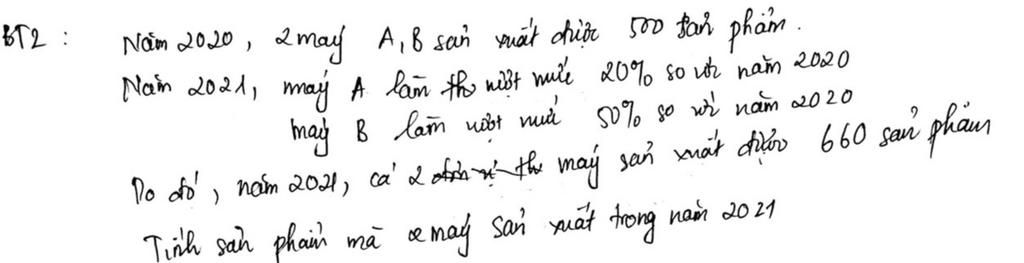 BT2 : Năm 2020, 2 máy A, B sản xuất được 500 sản phẩm.
Năm 2021, máy A làm vượt mức 20% so với năm 2020
máy B làm vượt mức 50% so với năm 2020
Do đó, năm 2021, cả 2 máy sản xuất được 660 sản phẩm
Tính sản phẩm mà máy sản xuất trong năm 2021